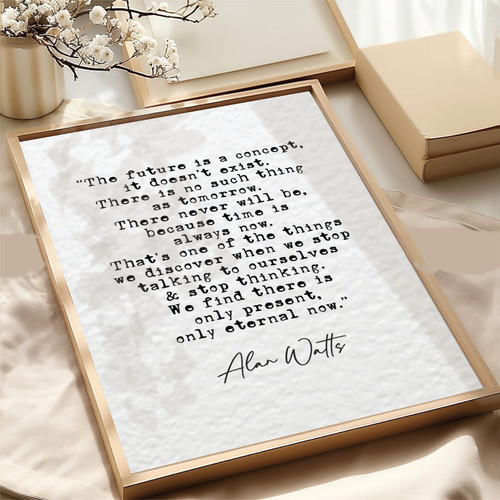 “The future is a concept,
it doesn't exist.
There is no such thing
as tomorrow.
There never will be,
because time is
always now.
That's one of the things
we discover when we stop
talking to ourselves
& stop thinking.
We find there is
only present,
only eternal now.”
Alan Watts